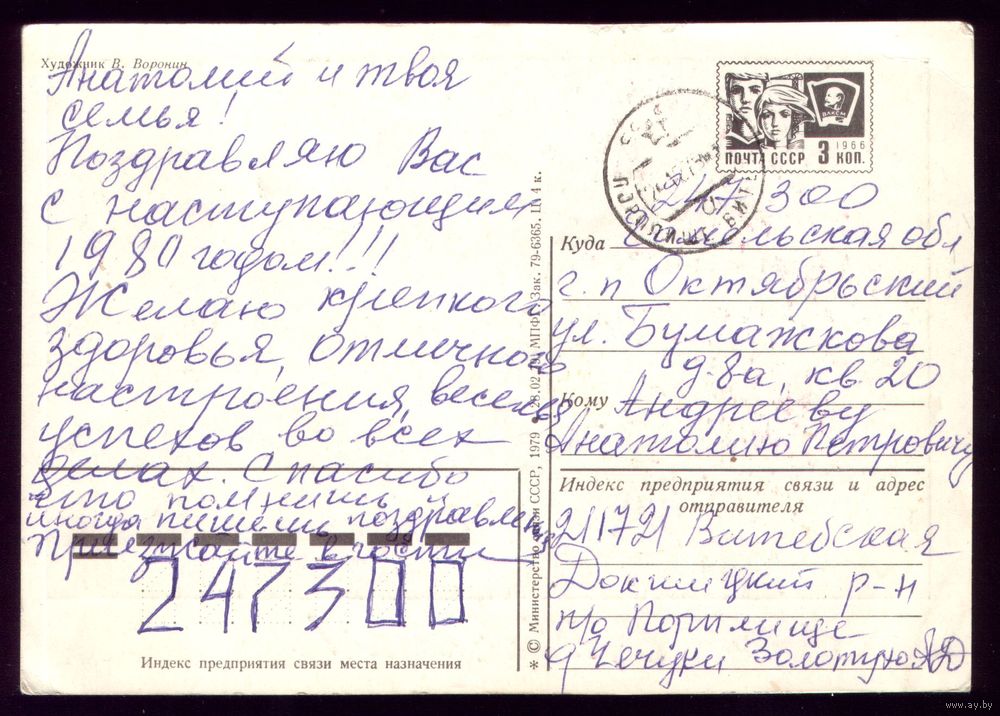 Художник В. Воронин
Анатолий и твоя
семья!
Поздравляю Вас
с наступающим
1980 годом!!!
Желаю крепкого
здоровья, отличного
настроения, веселья
успехов во всех
делах. Спасибо
что помнишь и
иногда пишешь поздравлен
Приезжайте в гости
247300
Индекс предприятия связи места назначения
* © Министерство связи СССР, 1979 • 28.02.79. МПФГ. Зак. 79-6365. 4 к.
ПОЧТА СССР 3 КОП.
1966
ВЛКСМ
247300
Куда обл
г. п Октябрьский
ул. Бумажкова
д. 8а, кв 20
Кому Андрееву
Анатолию Петровичу
Индекс предприятия связи и адрес
отправителя
211721 Витебская
Докшицкий р-н
п/о Порплище
д Чечуки Золотухо
www.ay.by